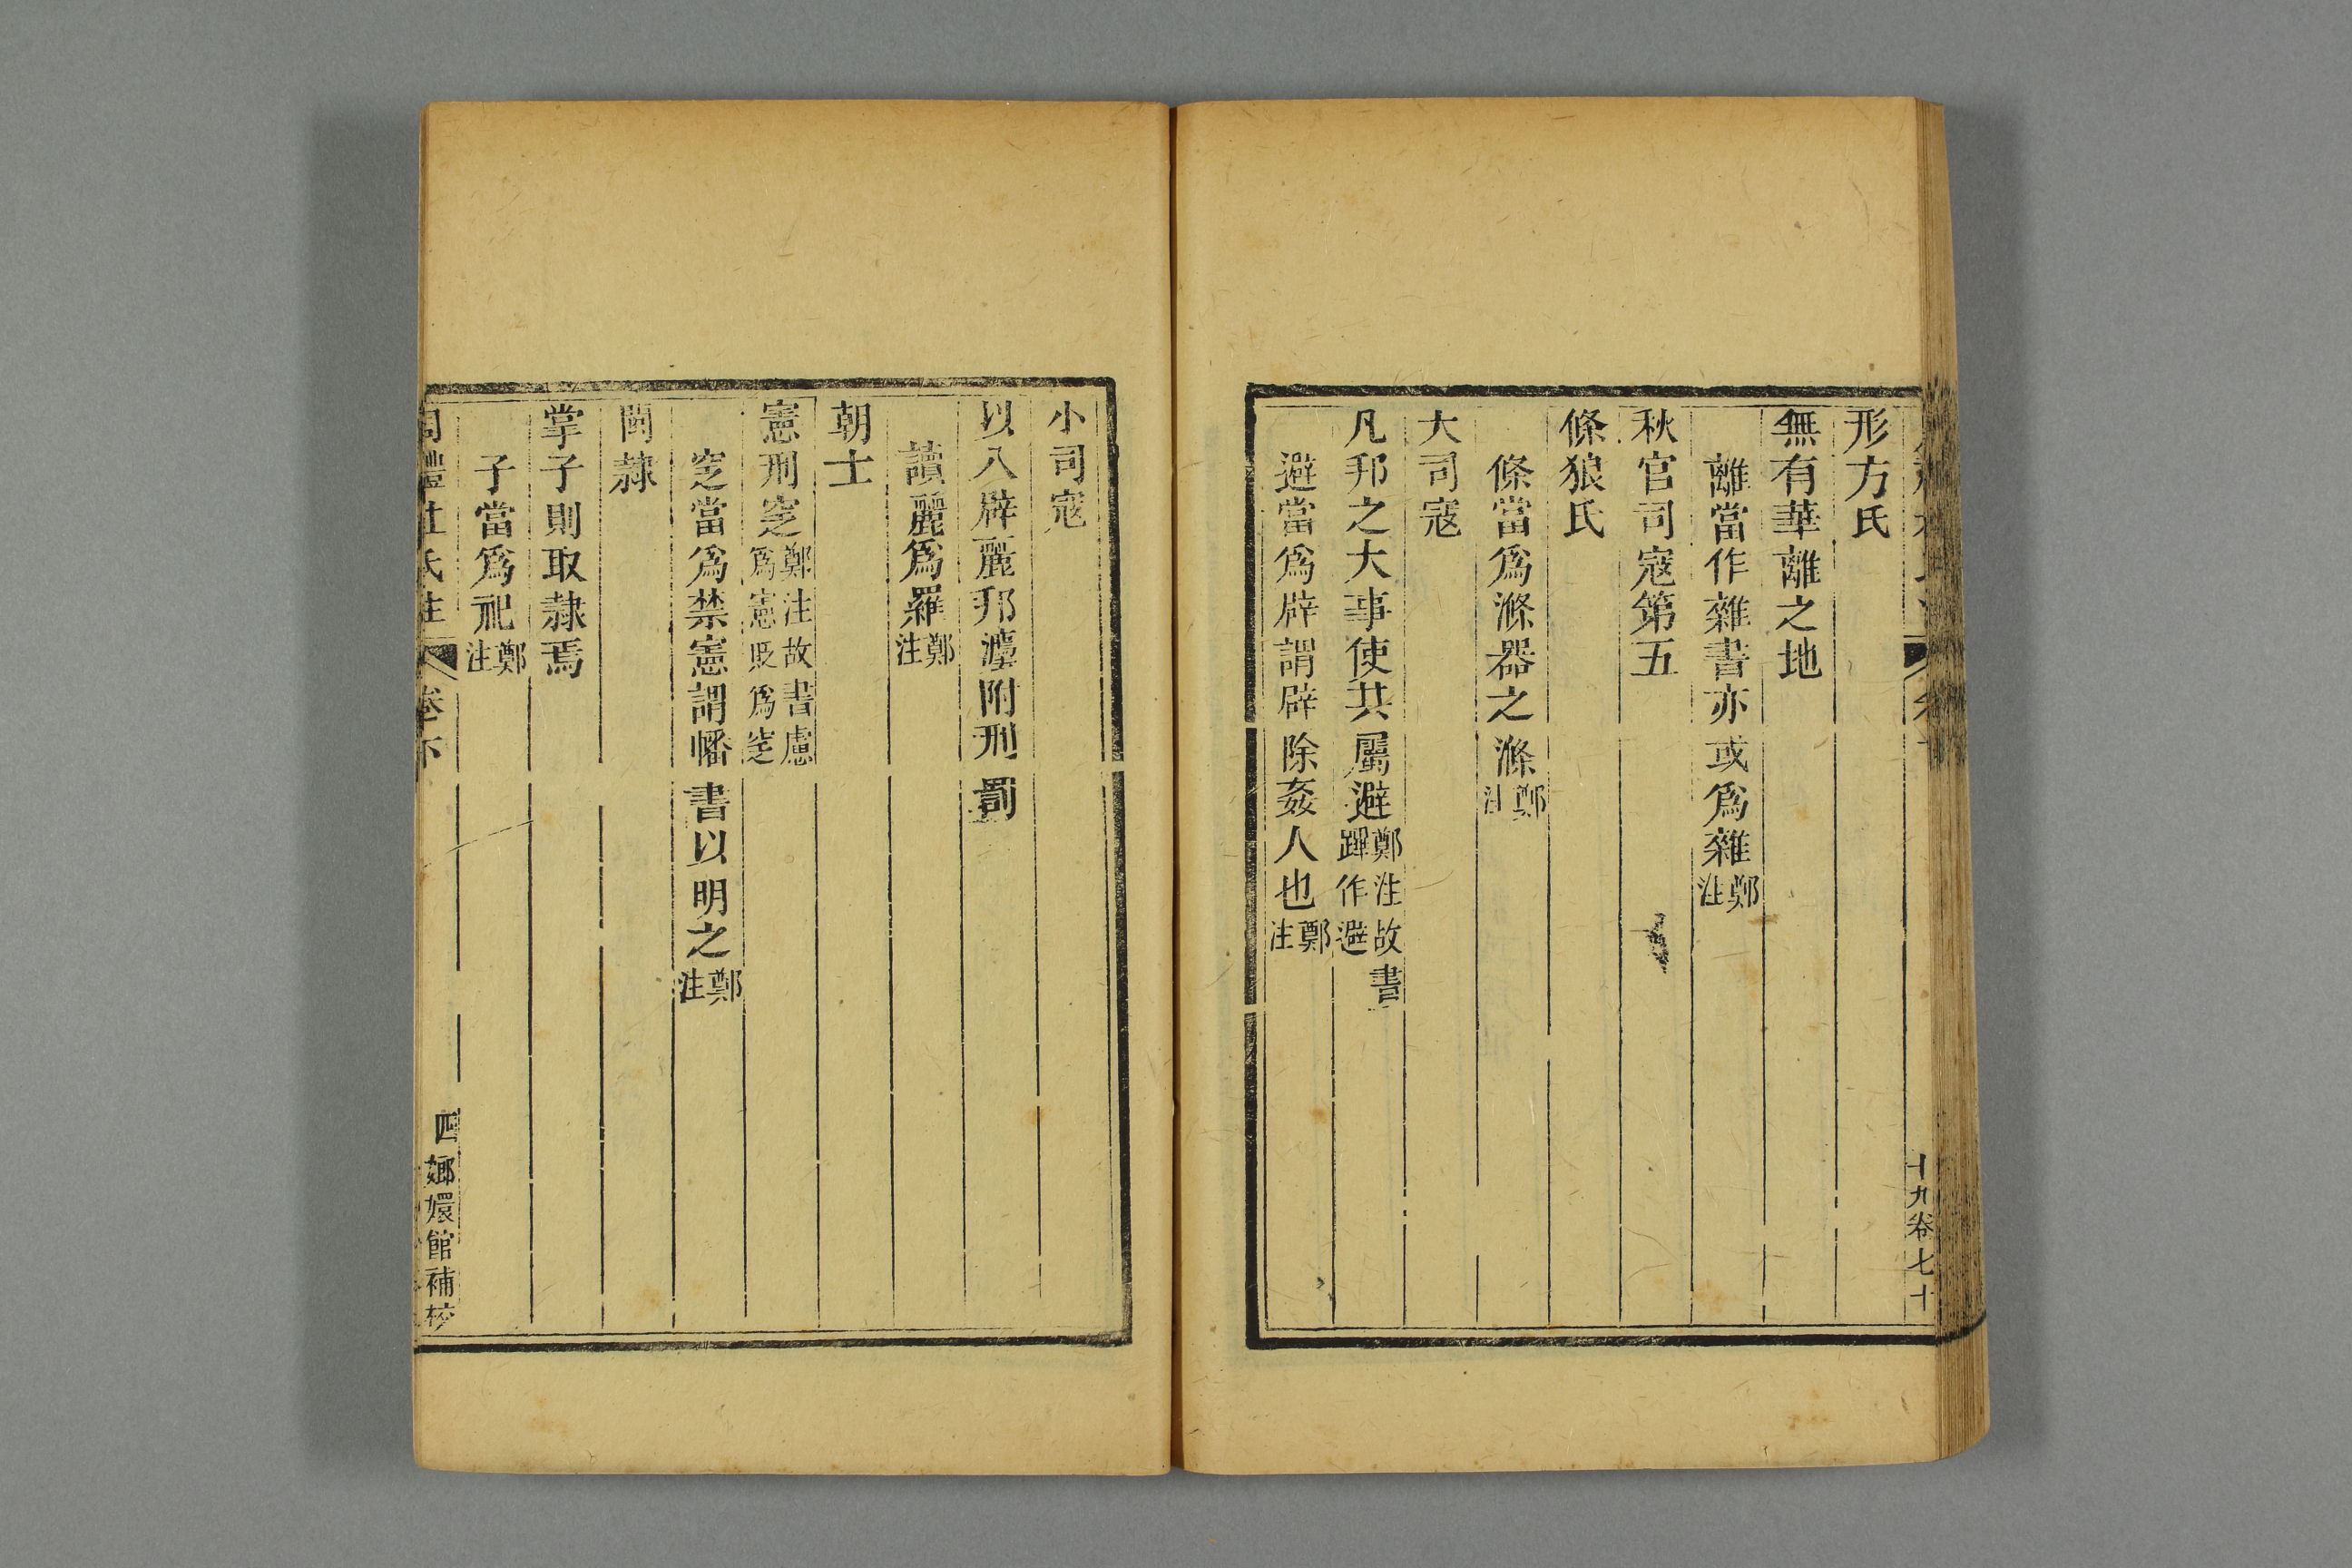 形方氏
無有華離之地
離當作雜書亦或爲雜鄭注
秋官司寇第五
條狼氏
條當爲滌器之滌鄭注
大司寇
凡邦之大事使其屬避鄭注故書蹕作避
避當爲辟謂辟除姦人也鄭注
十九卷七十
小司寇
以八辟麗邦灋附刑罰
讀麗爲羅鄭注
朝士
憲刑窆鄭注故書慮爲憲貶爲窆
窆當爲禁憲謂幡書以明之鄭注
閩隸
掌子則取隸焉
子當爲祀鄭注
周禮杜氏注 卷下 四 嫏嬛館補校